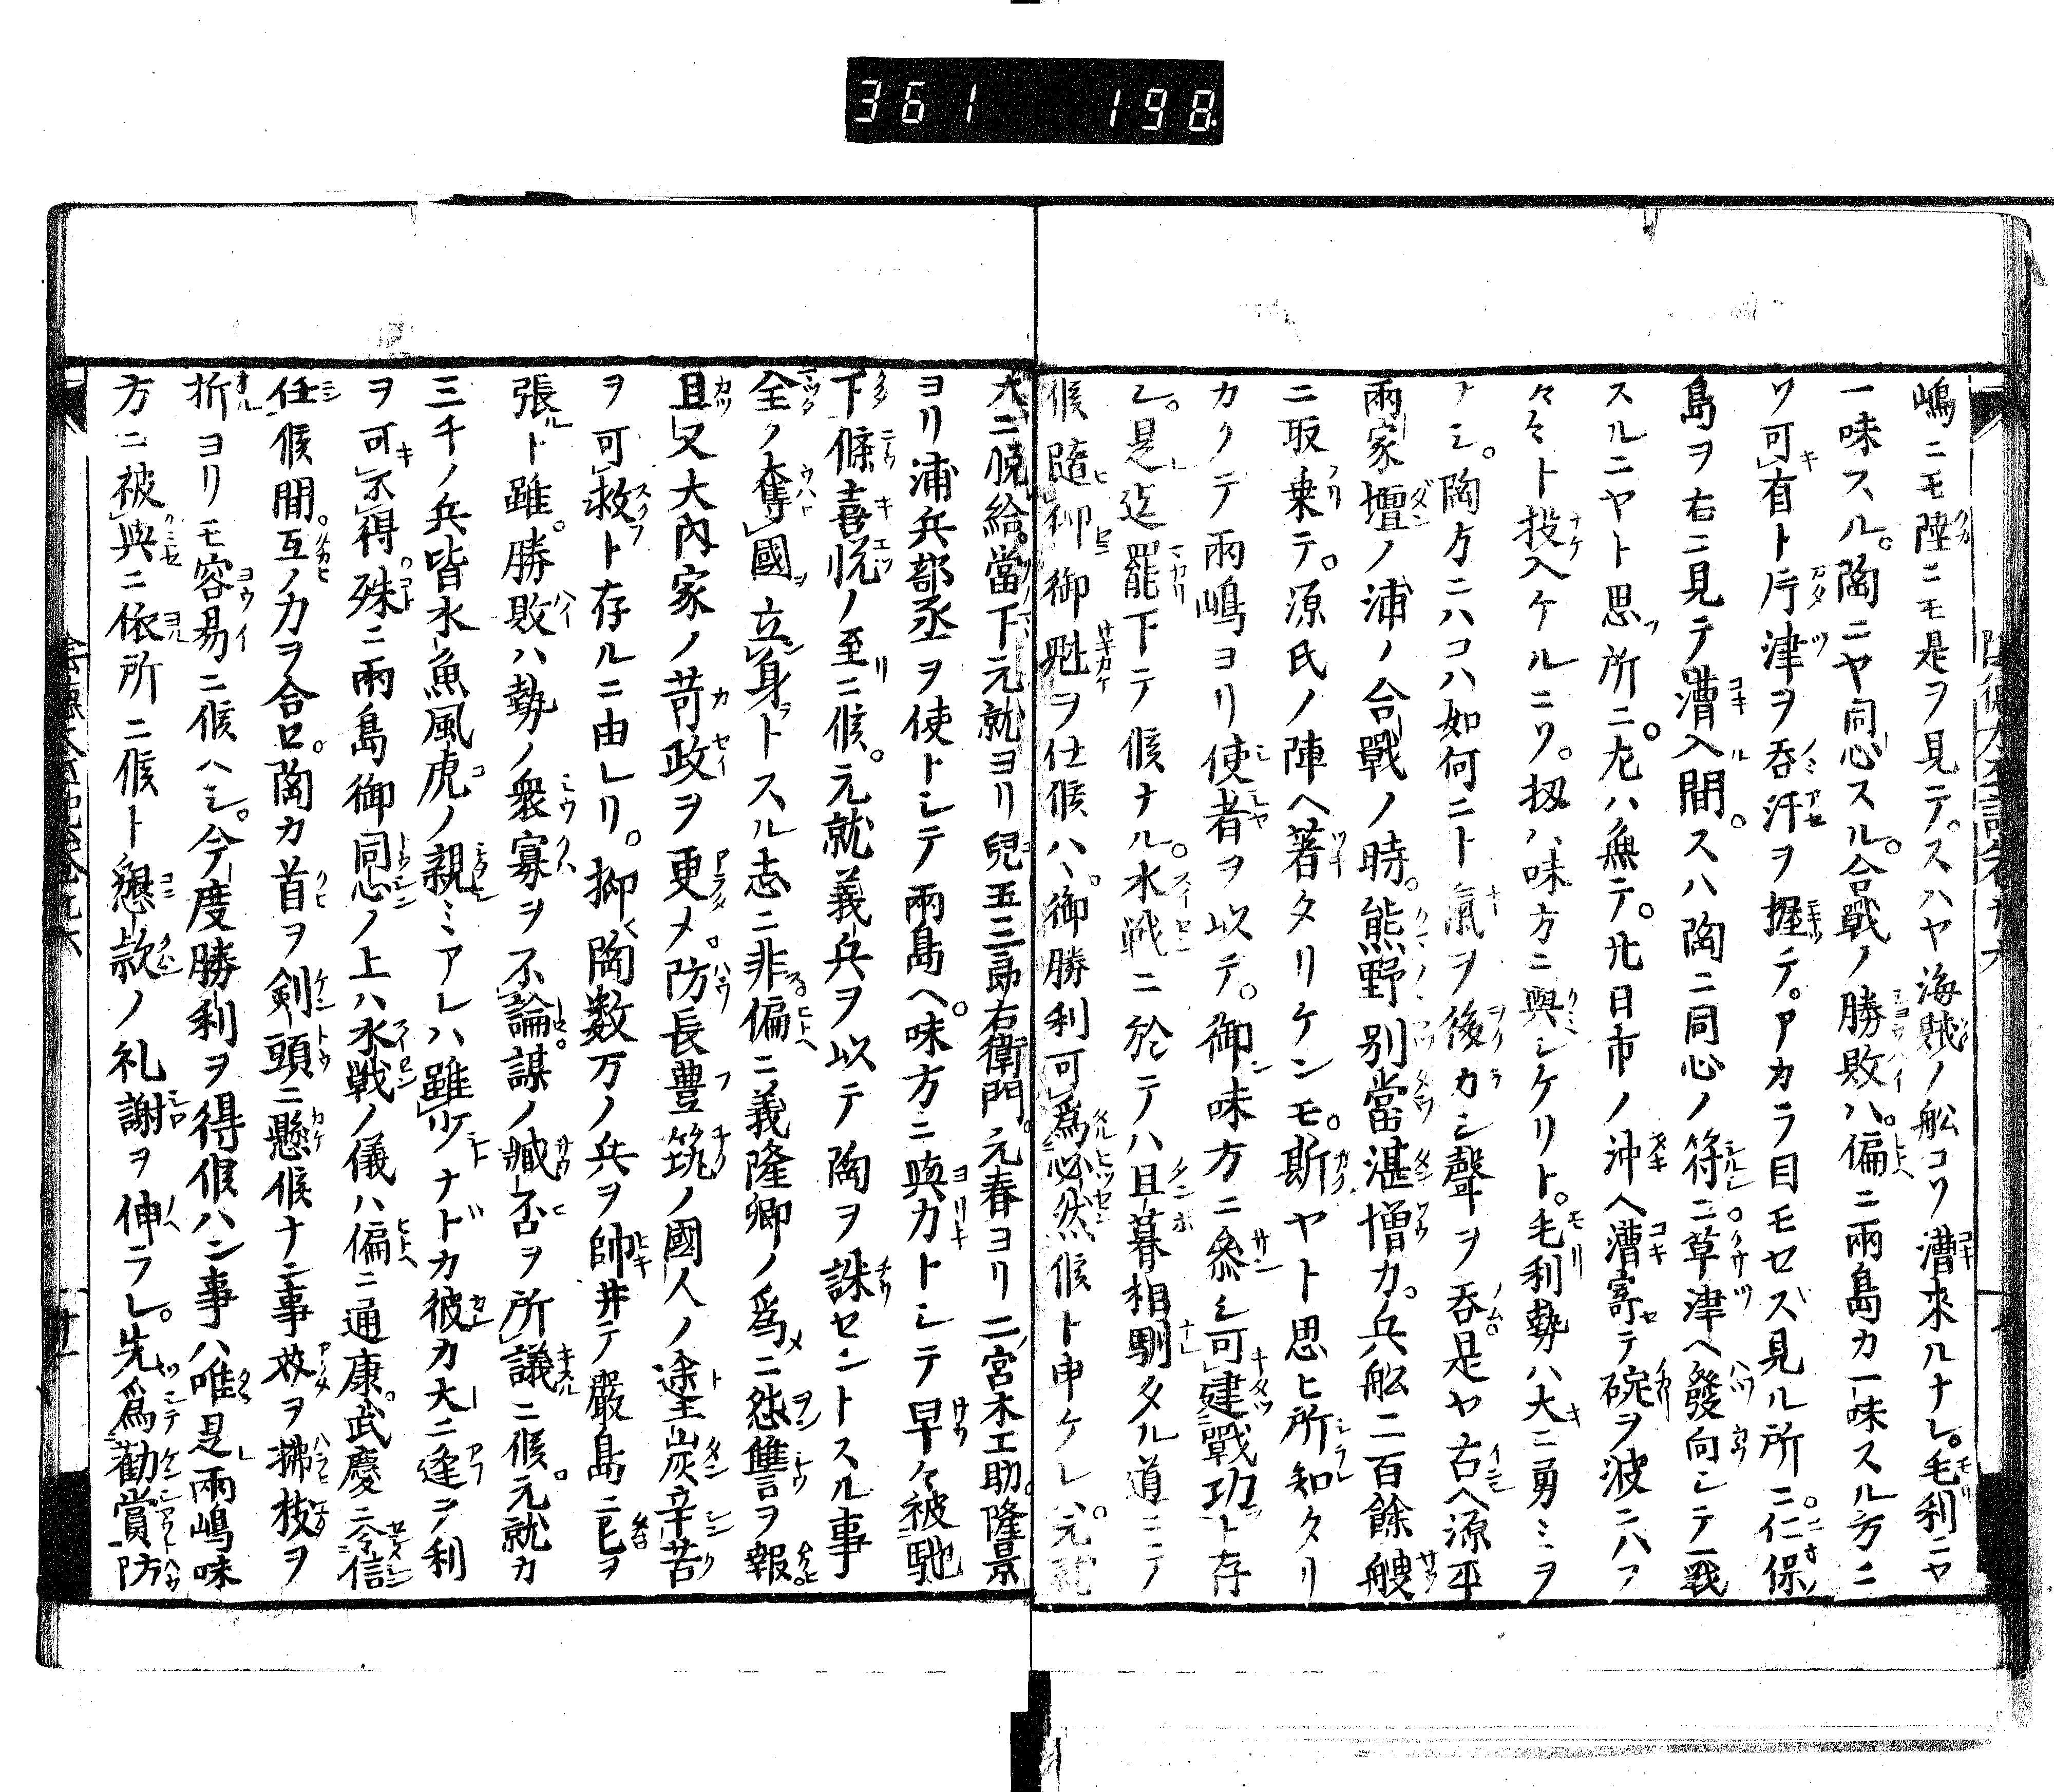 361 198
嶋ニモ陸ニモ是ヲ見テ。スハヤ海賊ノ舩コソ漕来ルナレ。毛利ニヤ
一味スル。陶ニヤ同心スル。合戰ノ勝敗ハ。偏ニ兩島カ一味スル方ニ
ソ可有ト片津ヲ呑汗ヲ握テ。アカラ目モセズ見ル所ニ。仁保
島ヲ右ニ見テ漕入間。スハ陶ニ同心ノ符ニ。草津ヘ發向シテ一戰
スルニヤト思所ニ。左ハ無テ。廿日市ノ沖ヘ漕寄テ碇ヲ波ニハフ
々々ト投入ケルニソ。扨ハ味方ニ與シケリト。毛利勢ハ大ニ勇ミヲ
ナシ。陶方ニハコハ如何ニト氣ヲ後カシ聲ヲ呑。是ヤ古ヘ源平
兩家壇ノ浦ノ合戰ノ時。熊野別當湛増カ。兵舩二百餘艘
ニ取乗テ。源氏ノ陣ヘ著タリケンモ。斯ヤト思ヒ所知タリ
カクテ兩嶋ヨリ使者ヲ以テ。御味方ニ參シ可建戰功ト存
シ。是迄罷下テ候ナル。水戦ニ於テハ且暮相馴タル道ニテ
候隨御御魁ヲ仕候ハヽ。御勝利可爲必然候ト申ケレハ。元就
大ニ悦給。當下元就ヨリ兒玉三郎右衛門。元春ヨリ二宮木工助。隆景
ヨリ浦兵部丞ヲ使トシテ兩島ヘ。味方ニ與力トシテ早々被馳
下條喜悦ノ至ニ候。元就義兵ヲ以テ陶ヲ誅セントスル事
全ノ奪國立身トスル志ニ非。偏ニ義隆卿ノ爲ニ怨讐ヲ報。
且又大内家ノ苛政ヲ更メ。防長豊筑ノ國人ノ塗炭辛苦
ヲ可救ト存ルニ由レリ。抑陶数万ノ兵ヲ帥并テ嚴島ニ屯ヲ
張ト雖。勝敗ハ勢ノ衆寡ヲ不論。謀ノ臧否ヲ所議ニ候。元就カ
三千ノ兵皆水魚風虎ノ親ミアレハ雖少ナドカ彼カ大ニ逢テ利
ヲ可不得。殊ニ兩島御同心ノ上ハ水戦ノ儀ハ偏ニ通康。武慶ニ令信
任候間。互ノ力ヲ合ロ。陶カ首ヲ剣頭ニ懸候ナン事效ヲ拂枝ヲ
折ヨリモ容易ニ候ヘシ。今度勝利ヲ得候ハン事ハ唯是兩嶋味
方ニ被與ニ依所ニ候ト懇款ノ礼謝ヲ伸ラレ。先爲勸賞防